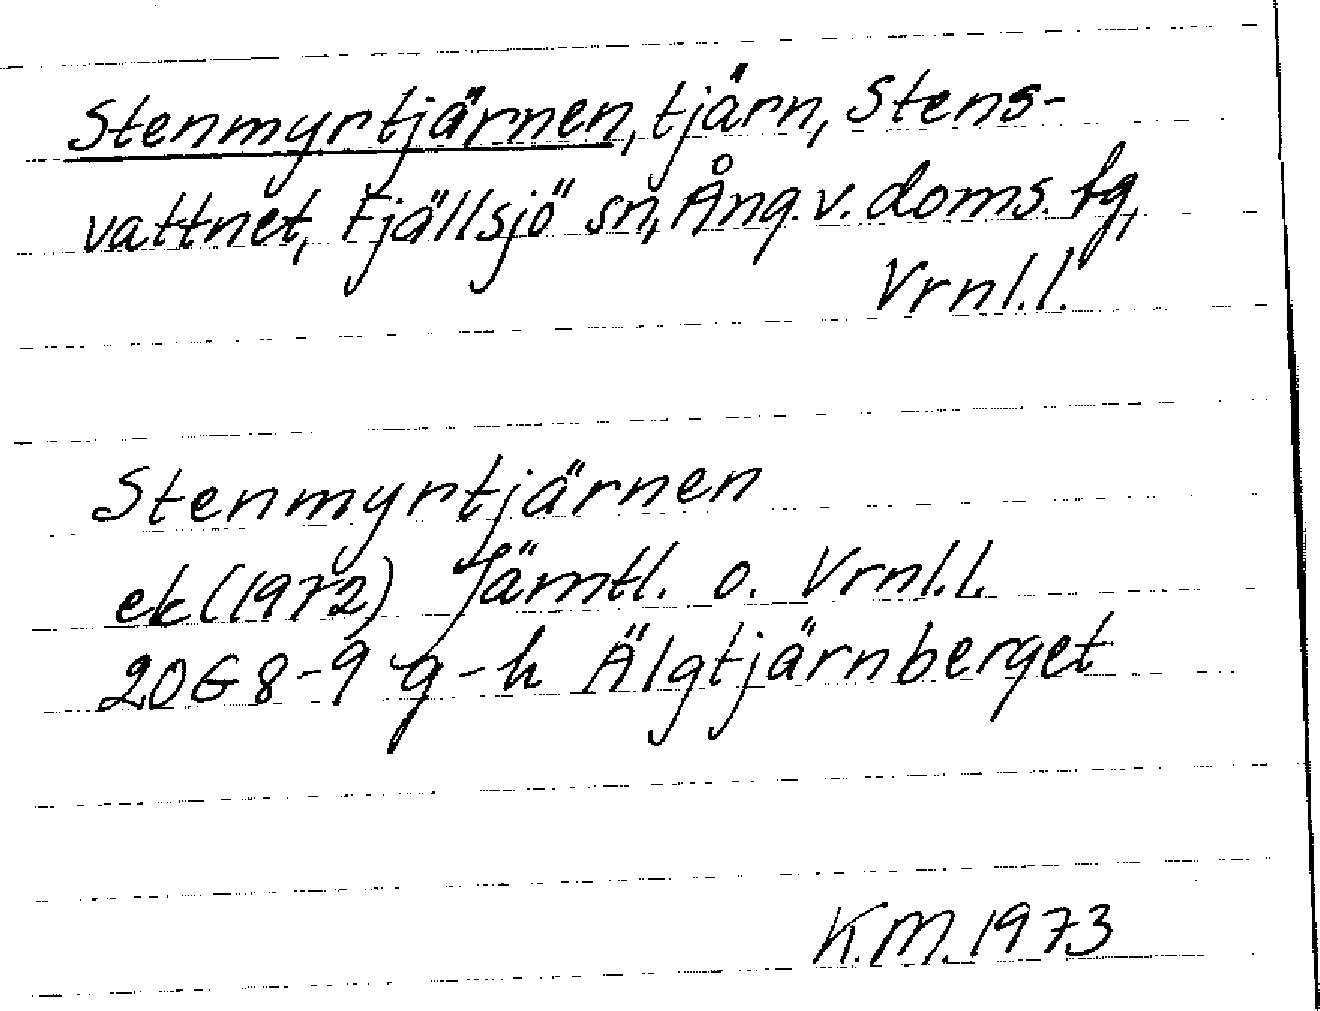 Stenmyrtjärnen, tjärn, Stens-
vattnet, Fjällsjö sn, Ång. v. doms. fg,
Vrnl.l.
Stenmyrtjärnen
ek (1972) Jämtl. o. Vrnl.l.
20G 8-9 g-h Älgtjärnberget
K.M. 1973